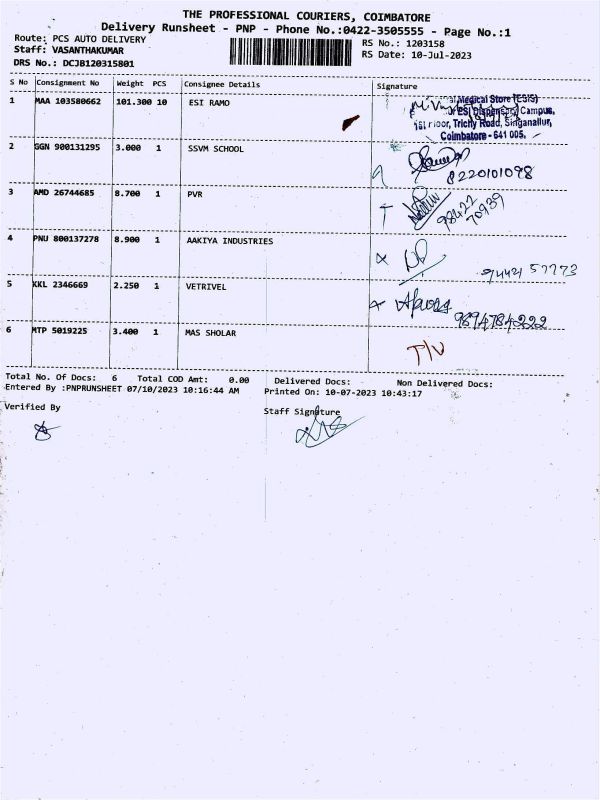 THE PROFESSIONAL COURIERS, COIMBATORE
Delivery Runsheet - PNP - Phone No.:0422-3505555 - Page No.:1
Route: PCS AUTO DELIVERY
RS No.: 1203158
Staff: VASANTHAKUMAR
RS Date: 10-Jul-2023
DRS No.: DCJB120315801
S No Consignment No Weight PCS Consignee Details Signature
1 MAA 103580662 101.300 10 ESI RAMO
Medical Store (ESIS)
ESI Dispensary Campus,
Floor, Trichy Road, Singanallur,
Coimbatore - 641 005.
2 GGN 900131295 3.000 1 SSVM SCHOOL
8220101098
3 AMD 26744685 8.700 1 PVR
98422
70939
4 PNU 800137278 8.900 1 AAKIYA INDUSTRIES
94421 57773
5 KKL 2346669 2.250 1 VETRIVEL
6 MTP 5019225 3.400 1 MAS SHOLAR
Total No. Of Docs: 6 Total COD Amt: 0.00 Delivered Docs: Non Delivered Docs:
Entered By :PNPRUNSHEET 07/10/2023 10:16:44 AM Printed On: 10-07-2023 10:43:17
Verified By Staff Signature